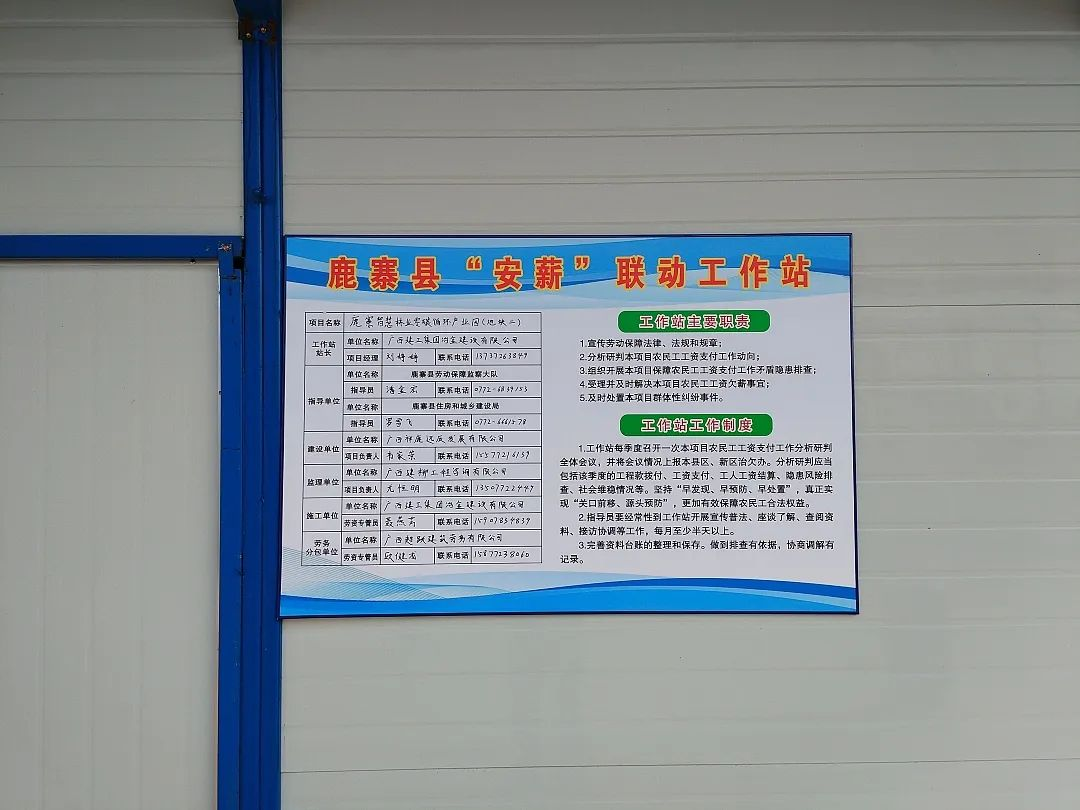 鹿寨县“安薪”联动工作站
项目名称 鹿寨智慧林业零碳循环产业园(地块二)
工作站站长 单位名称 广西建工集团冶金建设有限公司
项目经理 刘婷婷 联系电话 13737263849
指导单位 单位名称 鹿寨县劳动保障监察大队
指导员 联系电话 0772-6839153
单位名称 鹿寨县住房和城乡建设局
指导员 罗雪飞 联系电话 0772-6661578
建设单位 单位名称 广西祥鹿远成发展有限公司
项目负责人 韦家荣 联系电话 15577216139
监理单位 单位名称 广西建柳工程咨询有限公司
项目负责人 尤恒明 联系电话 13507722449
施工单位 单位名称 广西建工集团冶金建设有限公司
劳资专管员 联系电话 15907834839
劳务分包单位 单位名称 广西超跃建筑劳务有限公司
劳资专管员 联系电话 15877238060
工作站主要职责
1.宣传劳动保障法律、法规和规章；
2.分析研判本项目农民工工资支付工作动向；
3.组织开展本项目保障农民工工资支付工作矛盾隐患排查；
4.受理并及时解决本项目农民工工资欠薪事宜；
5.及时处置本项目群体性纠纷事件。
工作站工作制度
1.工作站每季度召开一次本项目农民工工资支付工作分析研判
全体会议，并将会议情况上报本县区、新区治欠办。分析研判应当
包括该季度的工程款拨付、工资支付、工人工资结算、隐患风险排
查、社会维稳情况等。坚持“早发现、早预防、早处置”，真正实
现“关口前移、源头预防”，更加有效保障农民工合法权益。
2.指导员要经常性到工作站开展宣传普法、座谈了解、查阅资
料、接访协调等工作，每月至少半天以上。
3.完善资料台账的整理和保存。做到排查有依据，协商调解有
记录。